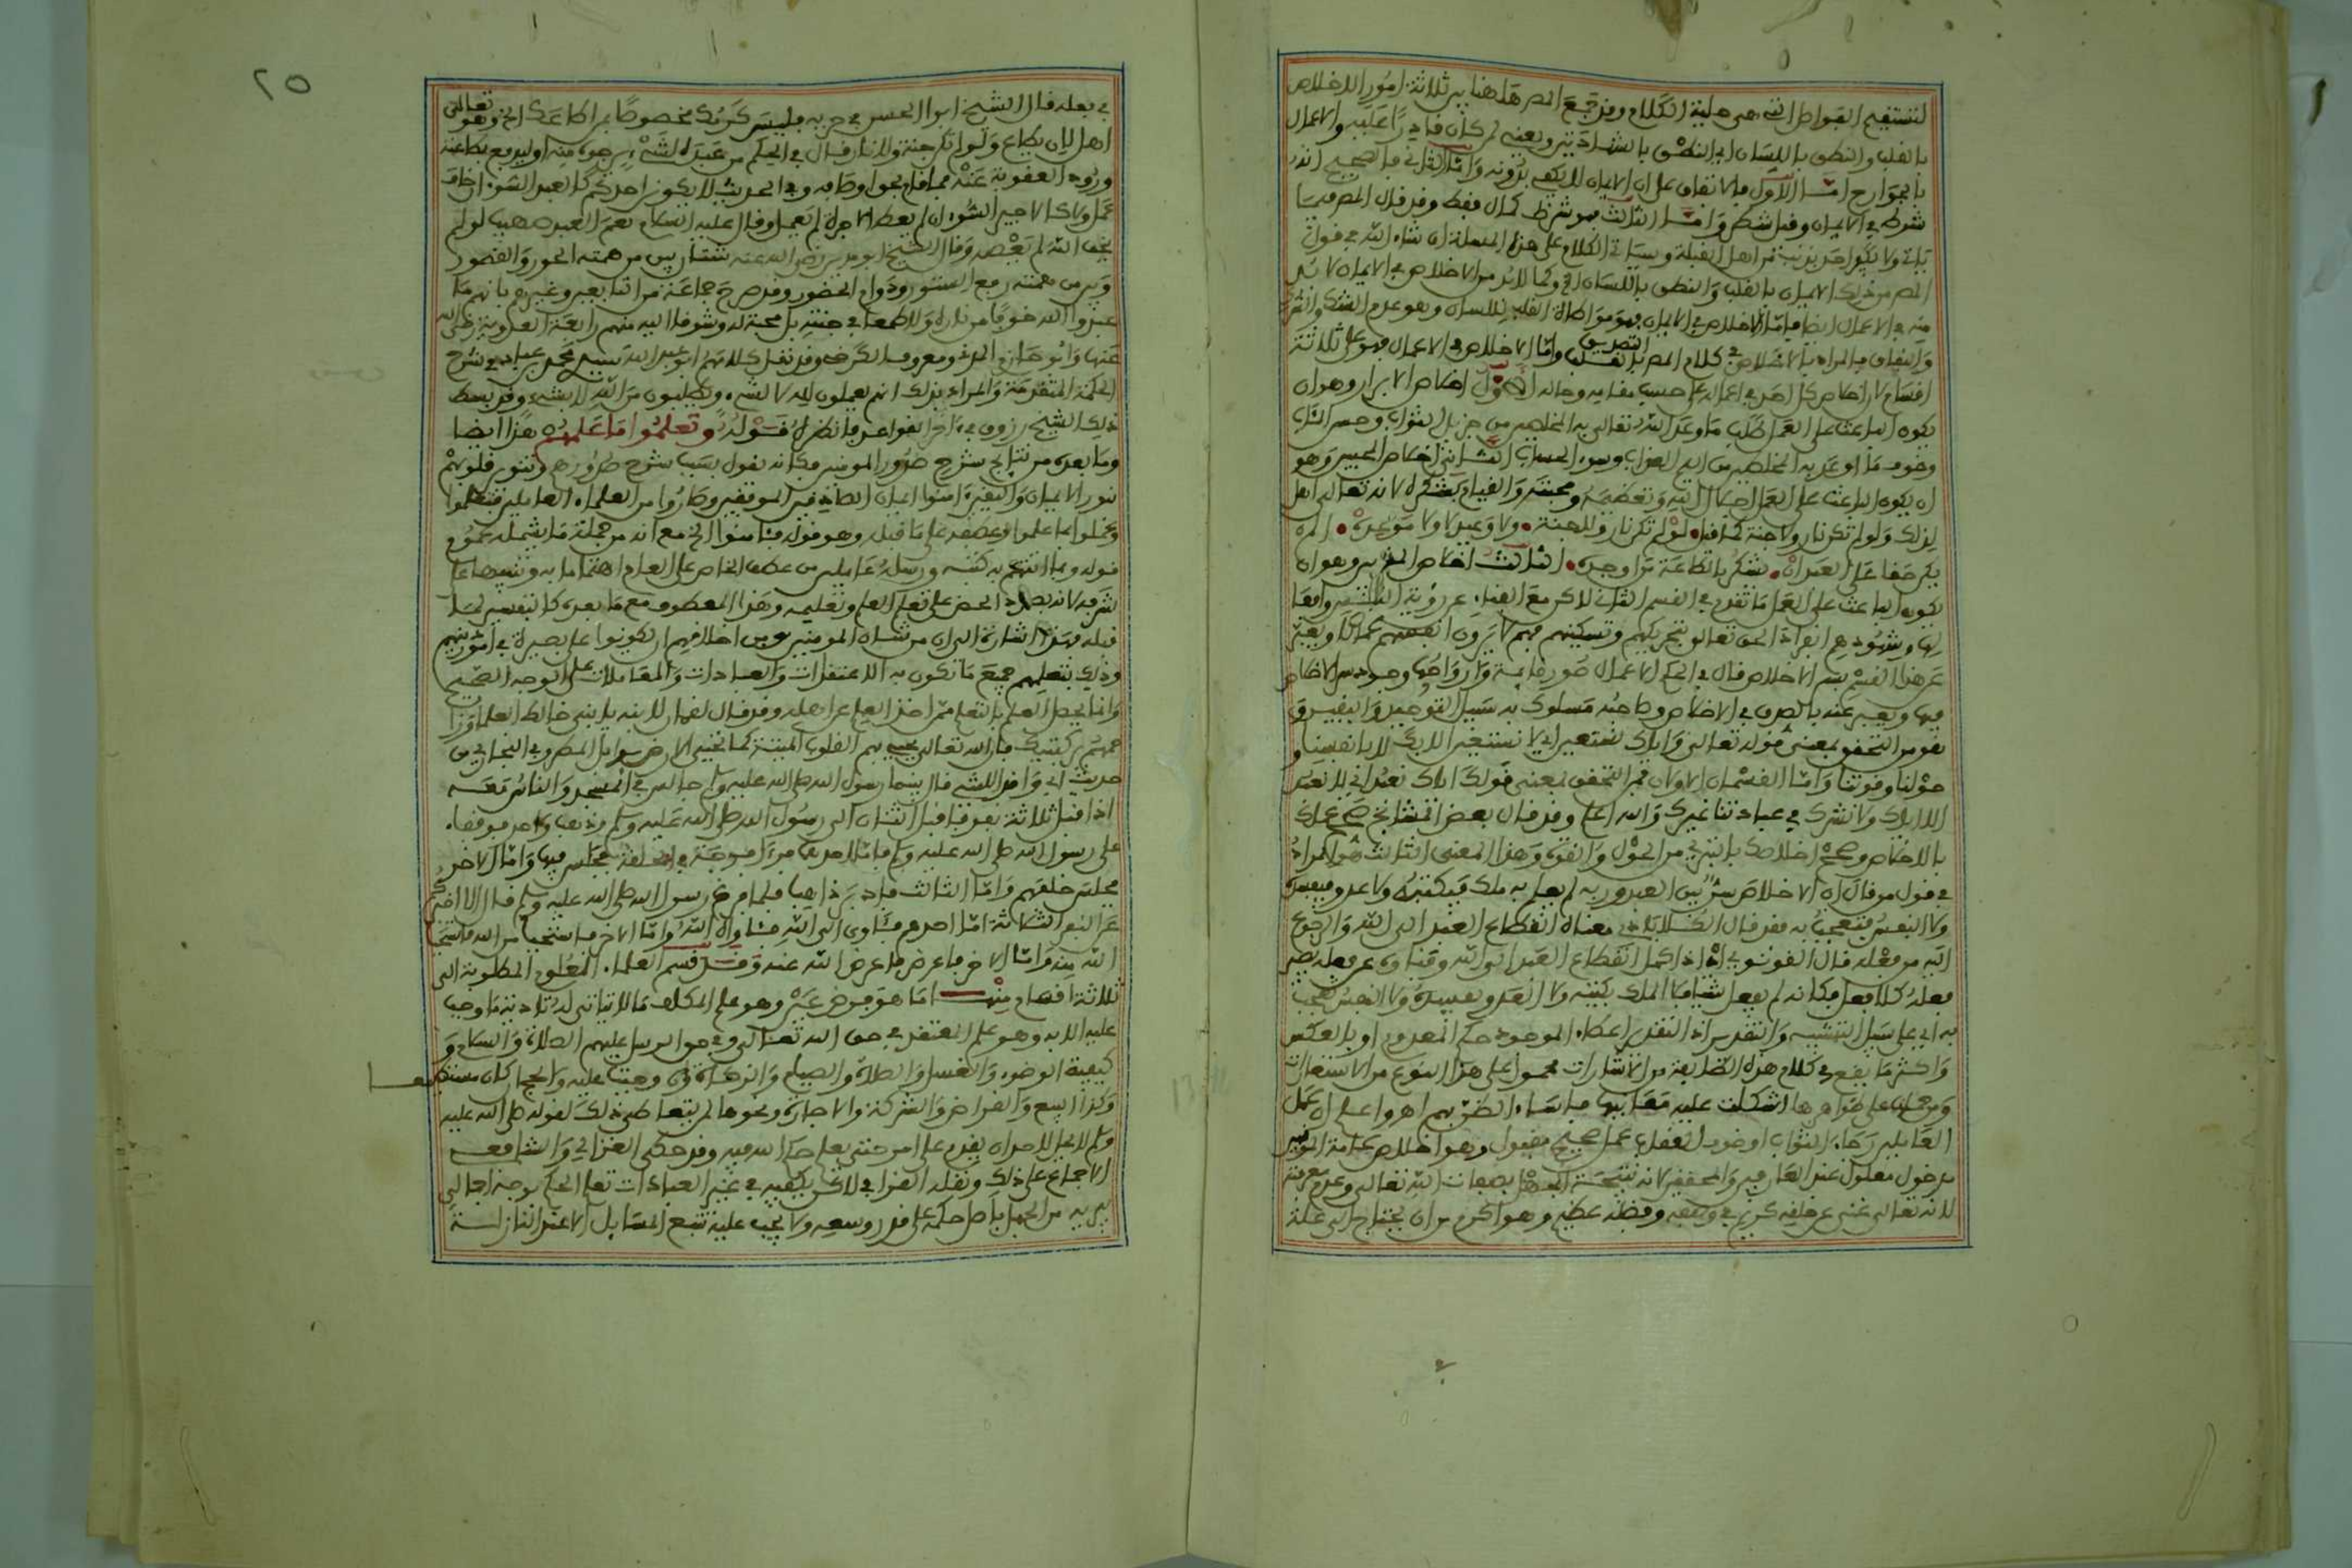 لتستقيم الفواصل التي هي حلية الكلام وقد جمع المص هاهنا بين ثلاثة امور الاخلاص
بالقلب والنطق باللسان اي النطق بالشهادتين ويعني لمن كان قادرا عليه والاعمال
بالجوارح امّا الاول فالاتفاق على ان الايمان لا يكفي بدونه وامّا الثاني فالصحيح انه
شرط في الايمان وقيل شطر وامّا الثالث فهو شرط كمال فقط وقد قال المص فيما
ياتي ولا يكفر احد بذنب من اهل القبلة وسياتي الكلام على هذه المسئلة ان شاء الله في قول
المص من ذلك الايمان بالقلب والنطق باللسان الخ وكما لا بد من الاخلاص في الايمان لا بد
منه في الاعمال ايضا فامّا الاخلاص في الايمان فهو مواطاة القلب للسان وهو عدم الشك والشرك
والنفاق فالمراد بالاخلاص في كلام المص التصديق بالقلب وامّا الاخلاص في الاعمال فهو على ثلاثة
اقسام لان اخلاص كل احد في اعماله على حسب مقامه وحاله الاول اخلاص الابرار وهو ان
يكون الباعث على العمل طلب ما وعد الله تعالى به المخلصين من جزيل الثواب وحسن المئاب
وخوف ما اوعد به المخلطين من اليم العذاب وسوء الحساب الثاني اخلاص المحبين وهو
ان يكون الباعث على العمل اجلال الله وتعظيمه ومحبته والقيام بشكره لانه تعالى اهل
لذلك ولو لم تكن نار ولا جنة كما قيل لو لم تكن نار ولا جنة ولا وعيد ولا موعده الم
يكن حقا على العبد ان يشكر بالطاعة من اوجده الثالث اخلاص المقربين وهو ان
يكون الباعث على العمل ما تقدم في القسم الثاني لاكن مع الفناء عن رؤية
لها وشهودهم انفراد الحق تعالى بتحريكهم وتسكينهم فهم لا يرون انفسهم عملا ويعبر
عن هذا القسم بسر الاخلاص قال في الحكم الاعمال صور قائمة وارواحها وجود سر الاخلاص
فيها ويعبر عنه بالصدق في الاخلاص وصاحبه مسلوك به سبيل التوحيد واليقين و
هو من التحقق بمعنى قوله تعالى واياك نستعين اي لا نستعين الا بك لا بانفسنا و
حولنا وقوتنا وامّا القسمان الاولان فمن التحقق بمعنى قولك اياك نعبد اي لا نعبد
الا اياك ولا نشرك في عبادتنا غيرك والله اعلم وقد قال بعض المشايخ صحح عملك
بالاخلاص وصحح اخلاصك بالتبري من الحول والقوة وهذا المعنى الثالث هو المراد
في قول من قال ان الاخلاص سر بين العبد وربه لم يعلم به ملك فيكتبه ولا عدو فيفسده
ولا النفس فتعجب به فقد قال الكلاباذي معناه انقطاع العبد الى الله والرجوع
اليه من فعله قال القونوي اي اذا كمل انقطاع العبد الى الله وفناؤه عن فعله يصير
فعله كلا فعل فكانه لم يفعل شيا فلا الملك يكتبه ولا العدو يفسده ولا النفس تعجب
به اي على سبيل التشبيه والتقدير اذ التقدير اعطاء الموجود حكم المعدوم او بالعكس
واكثر ما يقع في كلام هذه الطايفة من الاشارات محمول على هذا النوع من الاستعارات
ومن حملها على ظواهرها اشكلت عليه معانيها فاساء الظن بهم اهـ واعلم ان عمل
العاملين رجاء الثواب او خوف العقاب عمل صحيح مقبول وهو اخلاص عامة المومنين
مدخول معلول عند العارفين والمحققين لانه نتيجة الجهل بصفات الله تعالى وعدم معرفته
لانه تعالى غني عن خلقه كريم في وصفه وفضله عظيم وهو اكرم من ان يحتاج الى علة
٢٥
في بعله قال الشيخ ابو الحسن في حزبه فليس كرمك مخصوصا بمن اطاعك الخ وهو تعالى
اهل لان يطاع ولو لم تكن جنة ولا نار قال في الحكم من عبده لشيء يرجوه منه او ليدفع بطاعته
ورود العقوبة عنه فما قام بحق اوصافه وفي الحديث لا يكون احدكم كالعبد السوء ان خاف
عمل ولا كالاجير السوء ان لم يعط الاجرة لم يعمل وقال عليه السلام نعم العبد صهيب لو لم
يخف الله لم يعصه وقال الشيخ ابو مدين رضي الله عنه شتان بين من همته الحور والقصور
وبين من همته رفع الستور ودوام الحضور وقد صرح جماعة من التابعين وغيرهم بانهم ما
عبدوا الله خوفا من ناره ولا طمعا في جنته بل محبة له وشوقا اليه منهم رابعة العدوية رضي الله
عنها وابو حازم المدني ومعروف الكرخي وقد نقل كلامهم ابو عبد الله سيدي محمد بن عباد في شرح
الحكمة المتقدمة والمراد بذلك انهم يعملون لله لا لشيء ويطلبون من الله لا بشيء وقد بسط
ذلك الشيخ زروق في اخر القواعد فانظره قوله وتعلموا ما علمهم هذا ايضا
وما بعده من نتايج شرح صدور المومنين فكانه يقول بسبب شرح صدورهم وتنور قلوبهم
بنور الايمان واليقين امنوا ايمان الصادقين الموقنين وصاروا من العلماء العاملين فتعلموا
وعملوا بما علموا وعطفه على ما قبله وهو قوله فئامنوا الخ مع انه من جملة ما يشمله عموم
قوله وبما اتتهم به كتبه ورسله عاملين من عطف الخاص على العام اهتماما به وتنبيها على
شرفه لانه بصدد الحض على تعلم العلم وتعليمه وهذا المعطوف مع ما بعده كالتفسير لما
قبله فهذه اشارة الى ان من شان المومنين ومن اخلاقهم ان يكونوا على بصيرة في امور دينهم
وذلك بتعلمهم جميع ما تكون به الاعتقادات والعبادات والمعاملات على الوجه الصحيح
وانما يحصل العلم بالتعلم ممن اخذ العلم عن اهله وقد قال لقمان لابنه يا بني خالط العلماء وزا
حمهم بركبتيك فان الله تعالى يحيي بهم القلوب الميتة كما تحيي الارض بوابل المطر وفي البخاري من
حديث ابي واقد الليثي قال بينما رسول الله صلى الله عليه وسلم جالس في المسجد والناس معه
اذ اقبل ثلاثة نفر فاقبل اثنان الى رسول الله صلى الله عليه وسلم وذهب واحد فوقفا
على رسول الله صلى الله عليه وسلم فامّا احدهما فرءا فرجة في الحلقة فجلس فيها وامّا الاخر
فجلس خلفهم وامّا الثالث فادبر ذاهبا فلما فرغ رسول الله صلى الله عليه وسلم قال الا اخبركم
عن النفر الثلاثة امّا احدهم فئاوى الى الله فئاواه الله وامّا الاخر فاستحيا من الله فاستحيا
الله منه وامّا الاخر فاعرض فاعرض الله عنه وقد قسم العلماء العلوم المطلوبة الى
ثلاثة اقسام منها ما هو فرض عين وهو علم المكلف ما لا يتاتى له تادية ما وجب
عليه الا به وهو علم المعتقد في حق الله تعالى وفي حق الرسل عليهم الصلاة والسلام و
كيفية الوضوء والغسل والصلاة والصيام والزكاة ان وجبت عليه والحج ان كان مستطيعا
وكذا البيع والقراض والشركة والاجارة ونحوها لمن يتعاطى ذلك لقوله صلى الله عليه
وسلم لا يحل لاحد ان يقدم على امر حتى يعلم حكم الله فيه وقد حكى الغزالي والشافعي
الاجماع على ذلك ونقله القرافي لاكن يكفيه في غير العبادات تعلم الحكم بوجه اجمالي
يبريه من الجهل باصل حكمه على قدر وسعه ولا يجب عليه تتبع المسايل الا عند النازلة